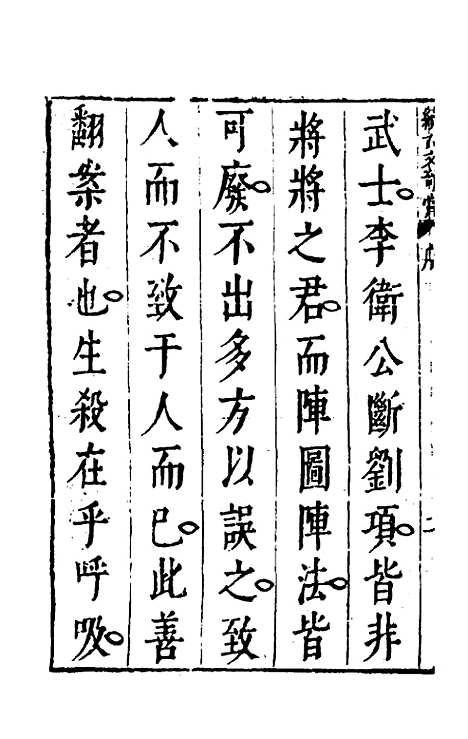 武士。李衛公斷劉項。皆非
將將之君。而陣圖陣法。皆
可廢。不出多方以誤之。致
人而不致于人而已。此善
翻案者也。生殺在乎呼吸。